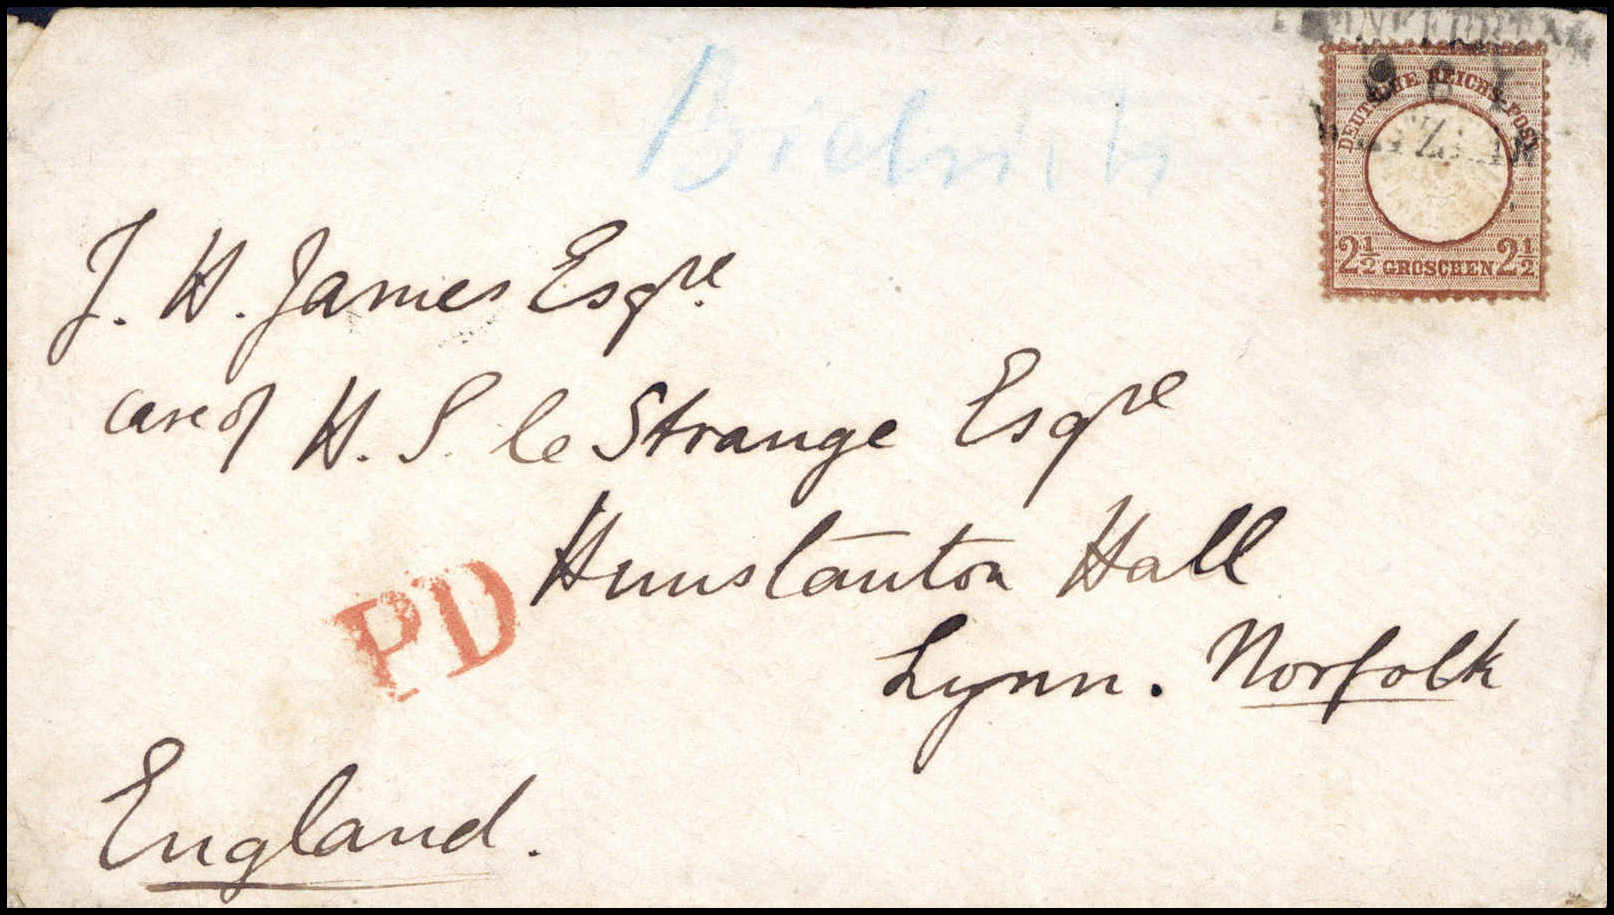 DEUTSCHE REICHS-POST
2½ GROSCHEN 2½
J. H. James Esqre.
care of H. S. le Strange Esqre
Hunstanton Hall
Lynn. Norfolk
PD
England.